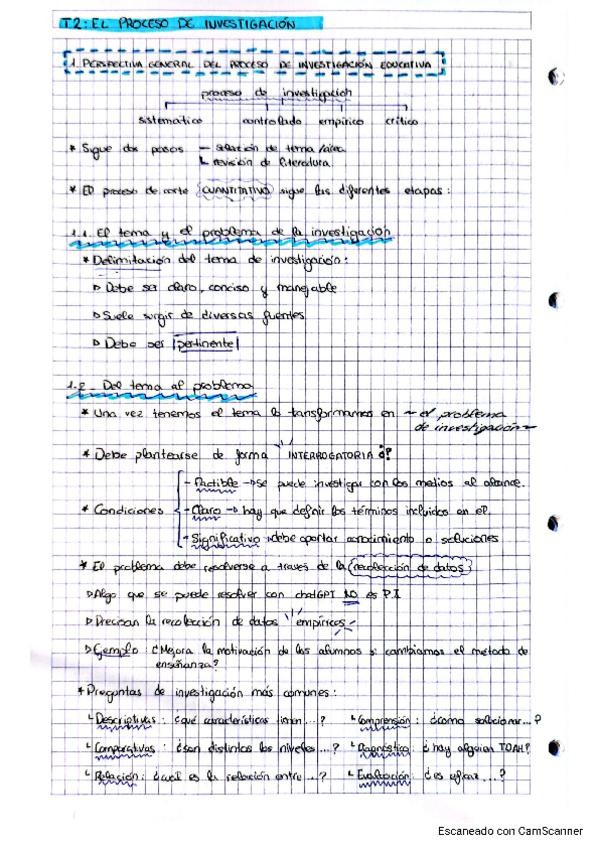 T2: EL PROCESO DE INVESTIGACIÓN
1. PERSPECTIVA GENERAL DEL PROCESO DE INVESTIGACIÓN EDUCATIVA
proceso de investigación
sistemático controlado empírico crítico
* Sigue dos pasos — selección de tema/área
revisión de literatura
* El proceso de corte CUANTITATIVO sigue las diferentes etapas:
1.1. El tema y el problema de la investigación
* Delimitación del tema de investigación:
▷ Debe ser claro, conciso y manejable
▷ Suele surgir de diversas fuentes
▷ Debe ser pertinente
1.2. Del tema al problema
* Una vez tenemos el tema lo transformamos en ~ el problema
de investigación ~
* Debe plantearse de forma INTERROGATORIA ¿?
- Factible → se puede investigar con los medios al alcance.
* Condiciones - Claro → hay que definir los términos incluidos en el.
- Significativo → debe aportar conocimiento o soluciones
* El problema debe resolverse a través de la recolección de datos
▷ Algo que se puede resolver con chatGPT NO es P.I
▷ Precisan la recolección de datos empíricos
▷ Ejemplo: ¿Mejora la motivación de los alumnos si cambiamos el método de
enseñanza?
* Preguntas de investigación más comunes:
Descriptivas: ¿qué características tienen...? Comprensión: ¿cómo solucionar...?
Comparativas: ¿son distintos los niveles...? Diagnóstico: ¿hay alguien TDAH?
Relación: ¿cuál es la relación entre...? Evaluación: ¿es eficaz...?
Escaneado con CamScanner